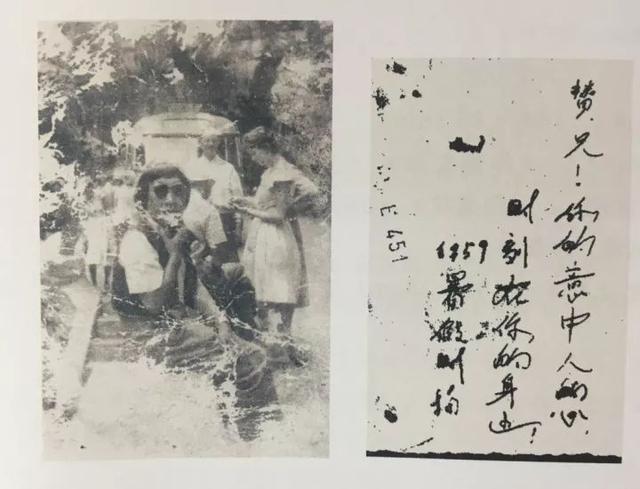 赞兄！你的意中人的心
时刻在你的身边！
1959暑假时拍
E 451